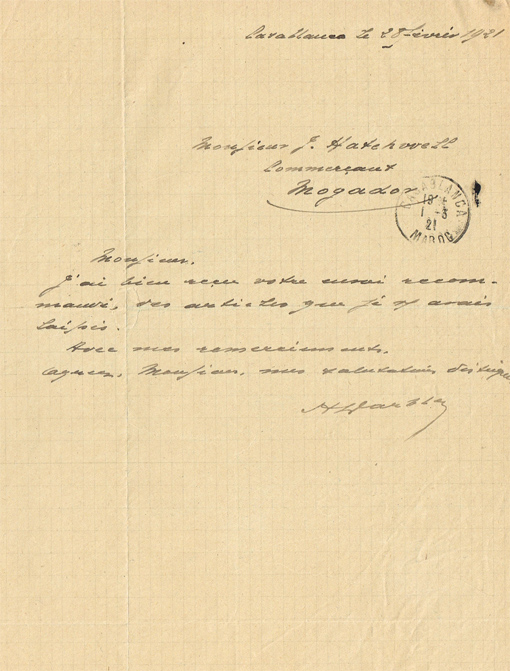 Casablanca le 28 Février 1921
Monsieur J. Hatchwell
Commerçant
Mogador
CASABLANCA
1 - 3
21
MAROC
Monsieur,
J'ai bien reçu votre envoi recom-
mandé, des articles que j'y avais
laissés.
Avec mes remerciements,
Agréez, Monsieur, mes salutations